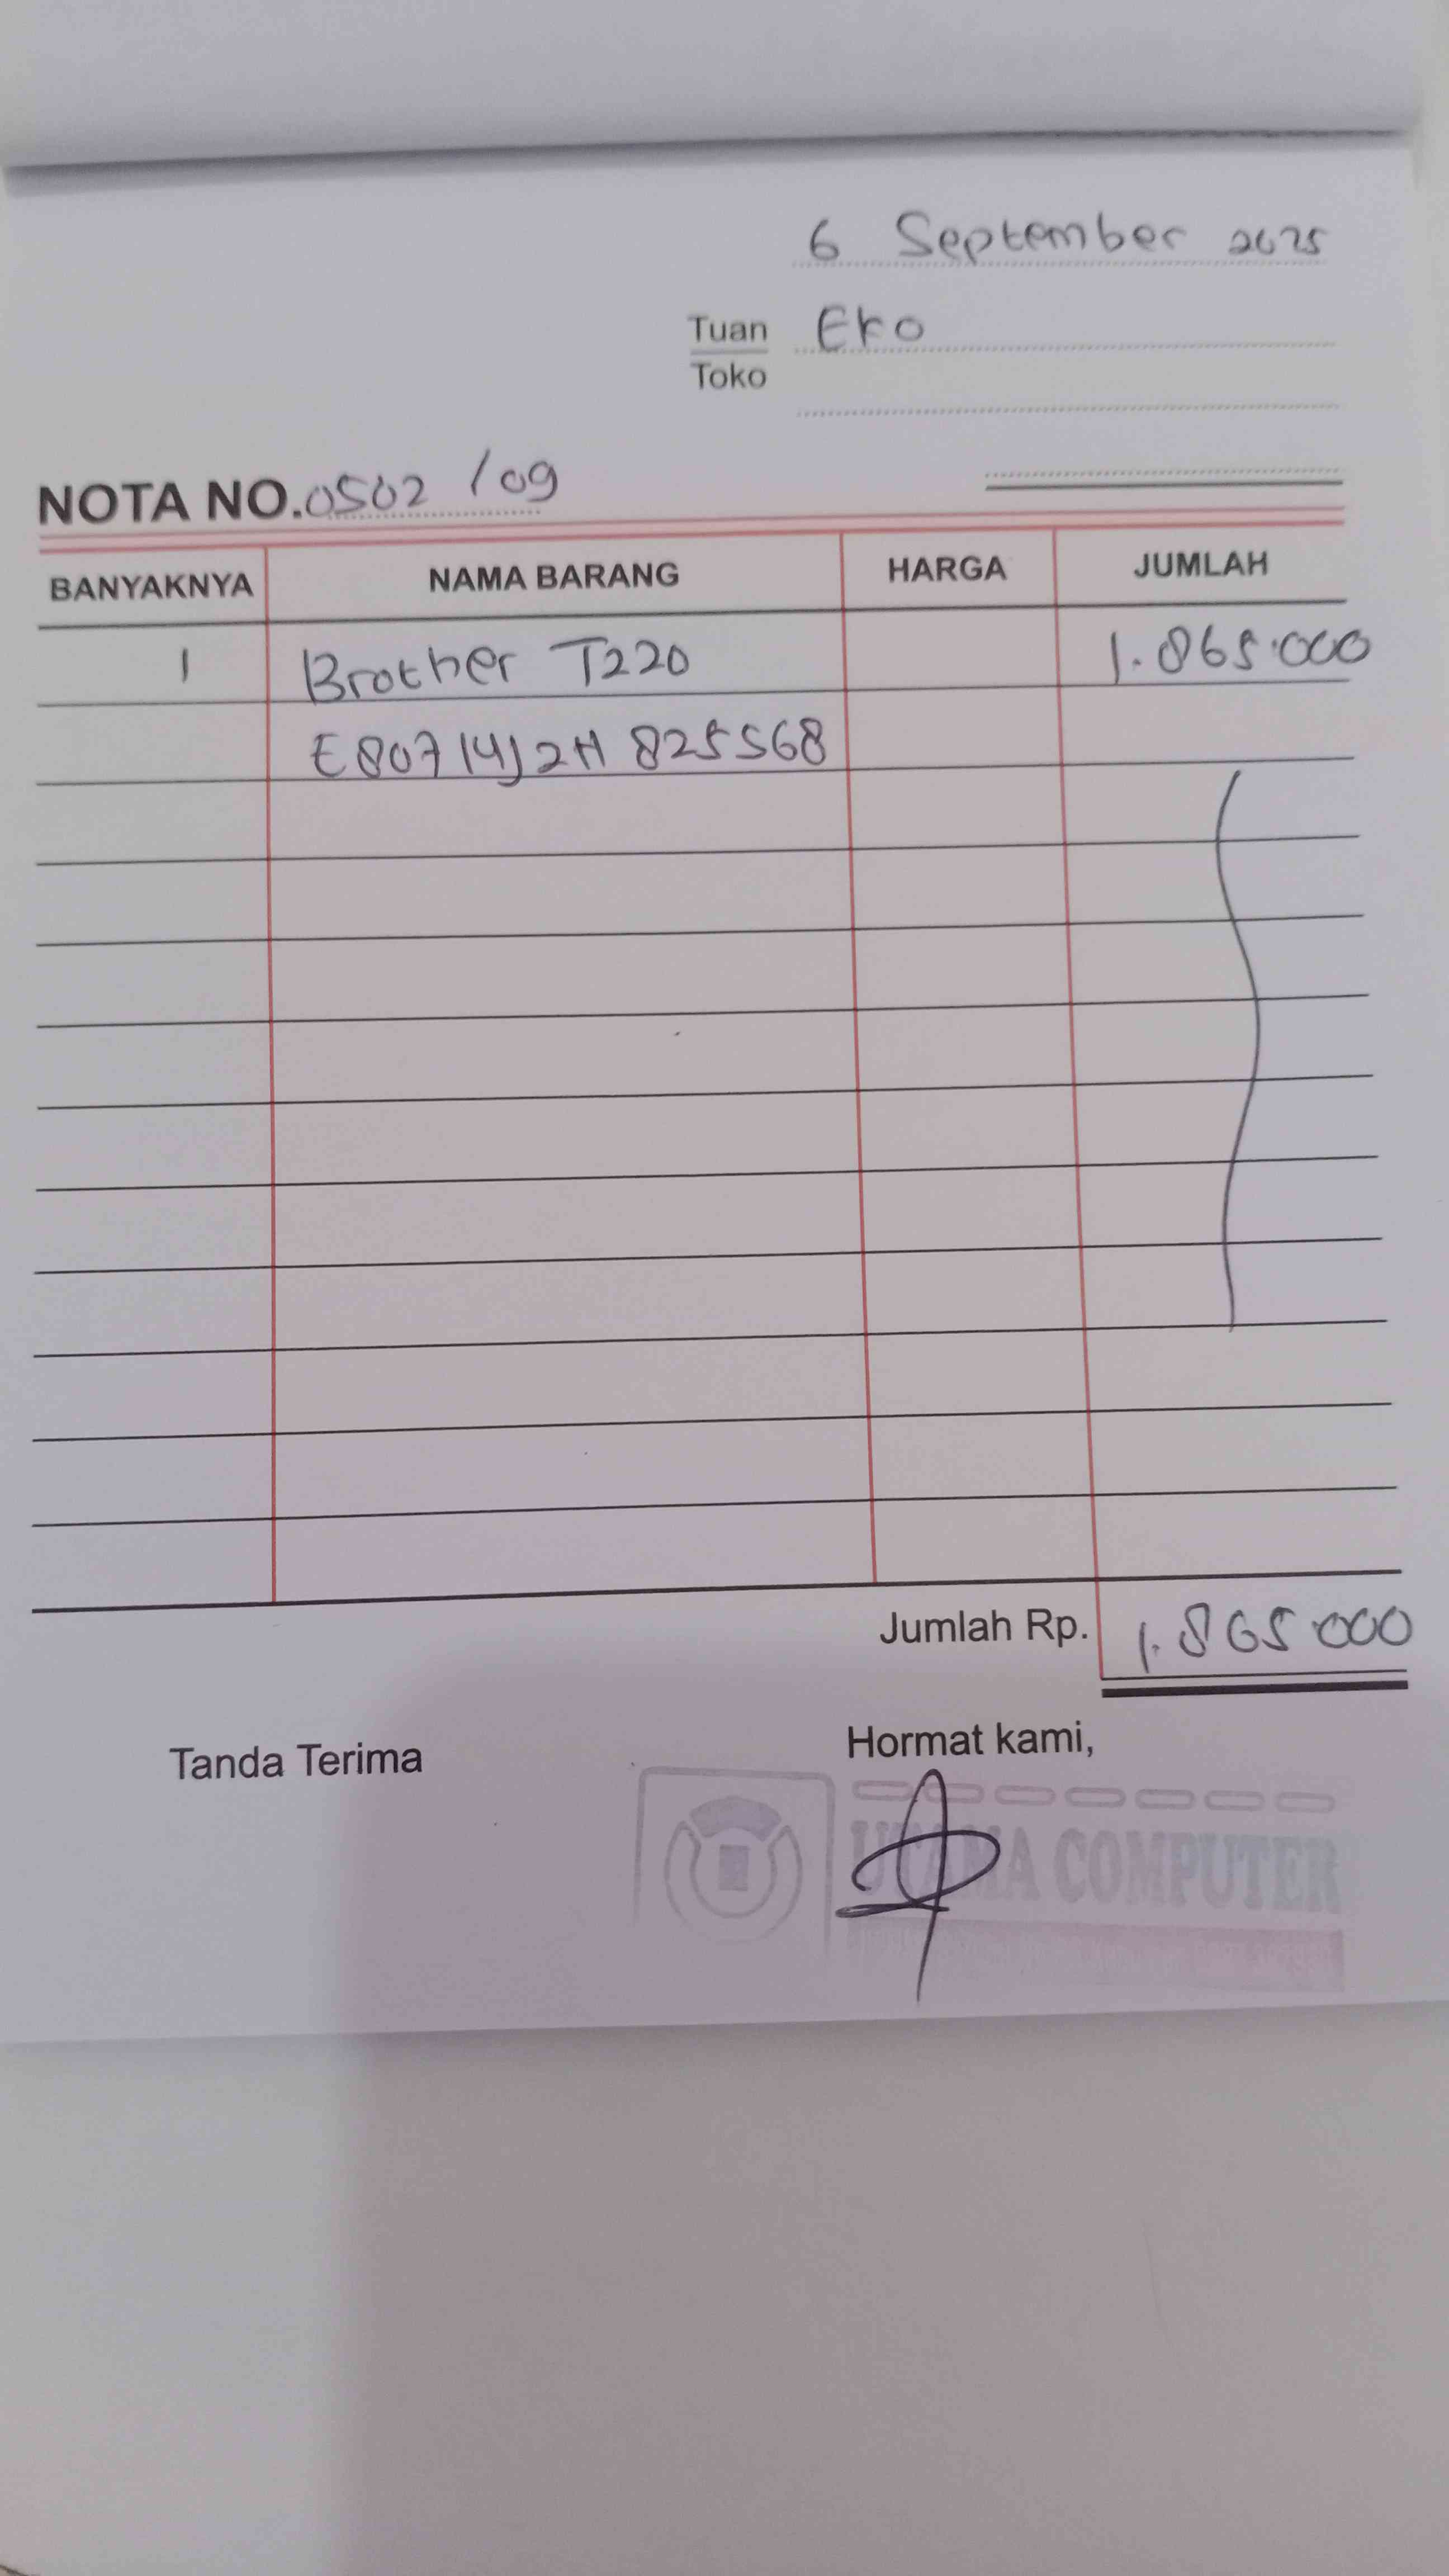 6 September 2025
Tuan Eko
Toko
NOTA NO. 0502 /09
BANYAKNYA NAMA BARANG HARGA JUMLAH
1 Brother T220 1.865.000
E80714J2H 825568
Jumlah Rp. 1.865.000
Tanda Terima Hormat kami,
UTAMA COMPUTER